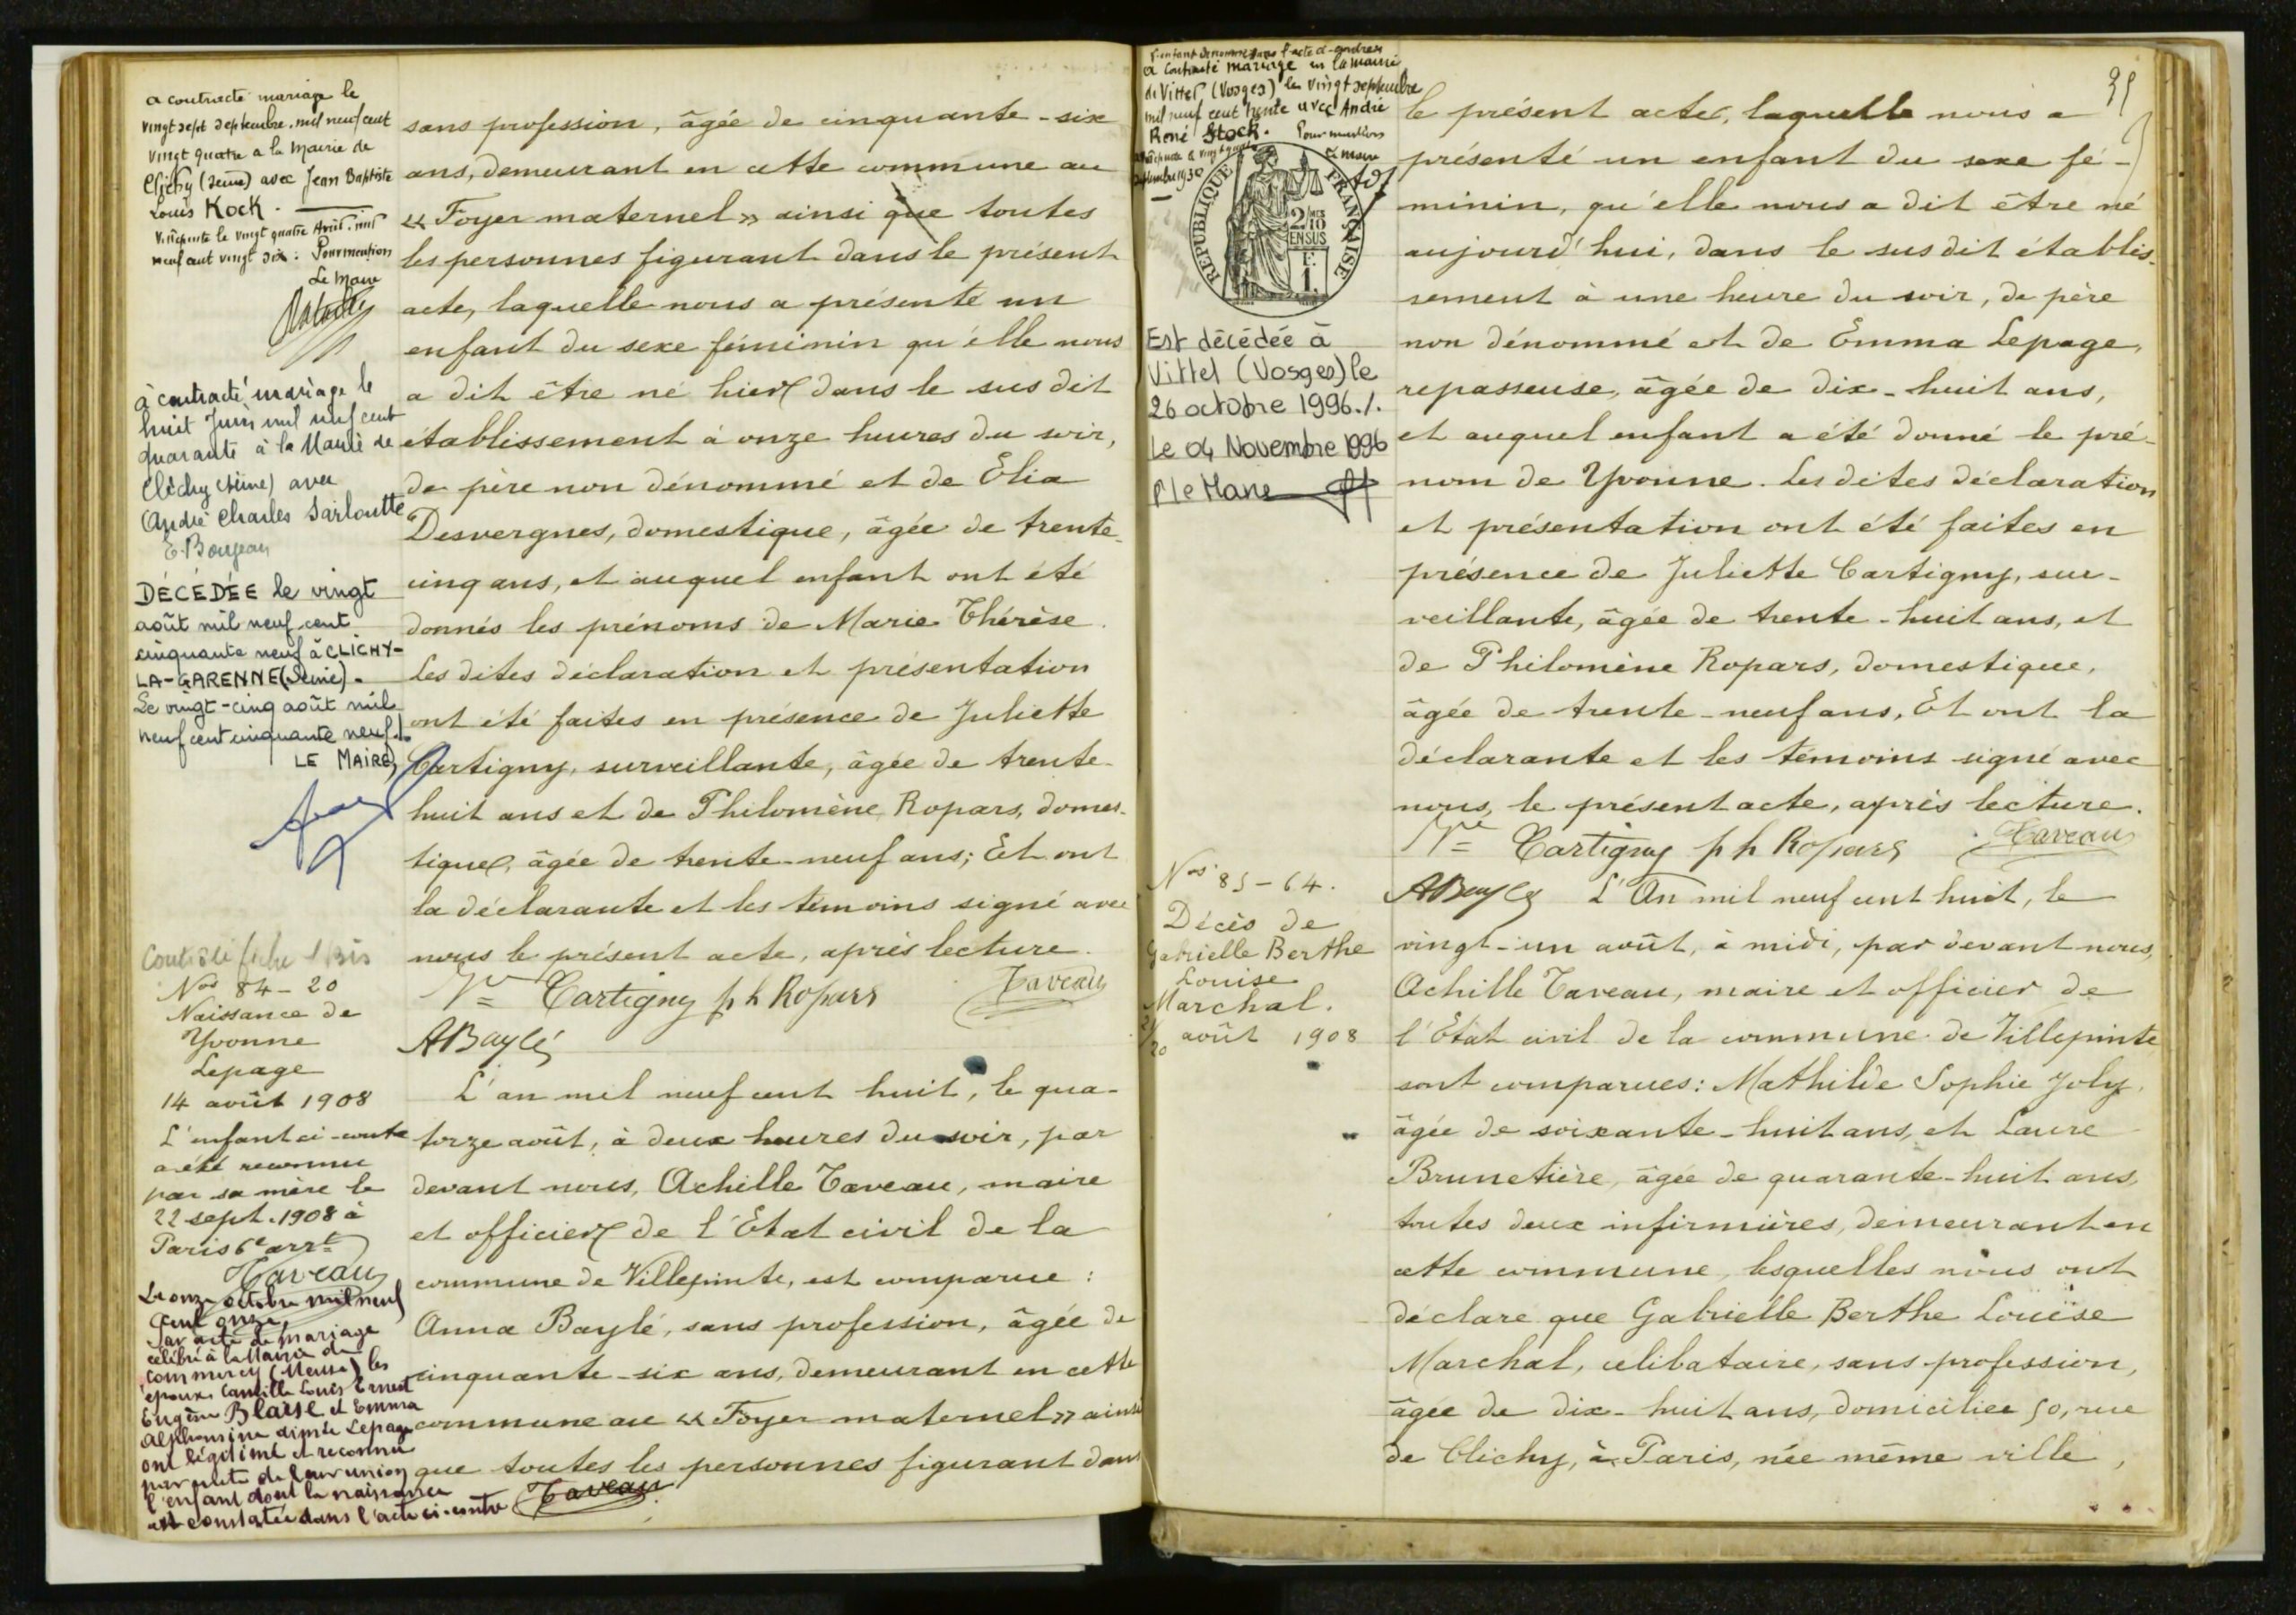 a contracté mariage le
vingt sept septembre mil neuf cent
vingt quatre a la Mairie de
Clichy (Seine) avec Jean Baptiste
Louis Kock.
Villepinte le vingt quatre Avril mil
neuf cent vingt six : Pour mention
Le Maire
à contracté mariage le
huit Juin mil neuf cent
quarante à la Mairie de
Clichy (Seine) avec
André Charles Sarloutte
E. Boujeau
DÉCÉDÉE le vingt
août mil neuf cent
cinquante neuf à CLICHY-
LA-GARENNE (Seine).
Le vingt-cinq août mil
neuf cent cinquante neuf.
LE MAIRE,
sans profession, âgée de cinquante-six
ans, demeurant en cette commune au
« Foyer maternel » ainsi que toutes
les personnes figurant dans le présent
acte, laquelle nous a présenté un
enfant du sexe féminin qu'elle nous
a dit être né hier dans le sus dit
établissement à onze heures du soir,
de père non dénommé et de Elia
Desvergnes, domestique, âgée de trente-
cinq ans, et auquel enfant ont été
donnés les prénoms de Marie Thérèse.
Les dites déclaration et présentation
ont été faites en présence de Juliette
Cartigny, surveillante, âgée de trente-
huit ans et de Philomène Ropars, domes-
tique, âgée de trente-neuf ans; Et ont
la déclarante et les témoins signé avec
nous le présent acte, après lecture.
Vve Cartigny ph Ropars Taveau
ABaylé
Nos 84-20
Naissance de
Yvonne
Lepage
14 août 1908
L'enfant ci-contre
a été reconnu
par sa mère le
22 sept. 1908 à
Paris 6e arrt
Taveau
Le onze octobre mil neuf
cent onze,
Par acte de mariage
célébré à la Mairie de
Commercy (Meuse) les
époux Camille Louis Ernest
Eugène Blaise et Emma
Alphonsine dimte Lepage
ont légitimé et reconnu
par suite de leur union
l'enfant dont la naissance
est constatée dans l'acte ci-contre Taveau
L'an mil neuf cent huit, le qua-
torze août, à deux heures du soir, par
devant nous, Achille Taveau, maire
et officier de l'Etat civil de la
commune de Villepinte, est comparue :
Anna Baylé, sans profession, âgée de
cinquante-six ans, demeurant en cette
commune au « Foyer maternel » ainsi
que toutes les personnes figurant dans
L'enfant dénommé dans l'acte ci-contre
a contracté mariage en la mairie
de Vittel (Vosges) le vingt septembre
mil neuf cent trente avec André
René Stock. Pour mention
Villepinte le vingt quatre Le maire
septembre 1930
RÉPUBLIQUE FRANÇAISE
2/10
EN SUS
Est décédée à
Vittel (Vosges) le
26 octobre 1996./.
Le 04 Novembre 1996
P/le Maire
35
le présent acte, laquelle nous a
présenté un enfant du sexe fé-
minin, qu'elle nous a dit être né
aujourd'hui, dans le sus dit établis-
sement à une heure du soir, de père
non dénommé et de Emma Lepage,
repasseuse, âgée de dix-huit ans,
et auquel enfant a été donné le pré-
nom de Yvonne. Les dites déclaration
et présentation ont été faites en
présence de Juliette Cartigny, sur-
veillante, âgée de trente-huit ans, et
de Philomène Ropars, domestique,
âgée de trente-neuf ans, Et ont la
déclarante et les témoins signé avec
nous, le présent acte, après lecture.
Vve Cartigny ph Ropars Taveau
ABaylé
Nos 85-64.
Décès de
Gabrielle Berthe
Louise
Marchal.
21/20 août 1908
L'An mil neuf cent huit, le
vingt-un août, à midi, par devant nous,
Achille Taveau, maire et officier de
l'Etat civil de la commune de Villepinte
sont comparues : Mathilde Sophie Joly,
âgée de soixante-huit ans, et Laure
Brunetière, âgée de quarante-huit ans,
toutes deux infirmières, demeurant en
cette commune, lesquelles nous ont
déclaré que Gabrielle Berthe Louise
Marchal, célibataire, sans profession,
âgée de dix-huit ans, domiciliée 50, rue
de Clichy, à Paris, née même ville,